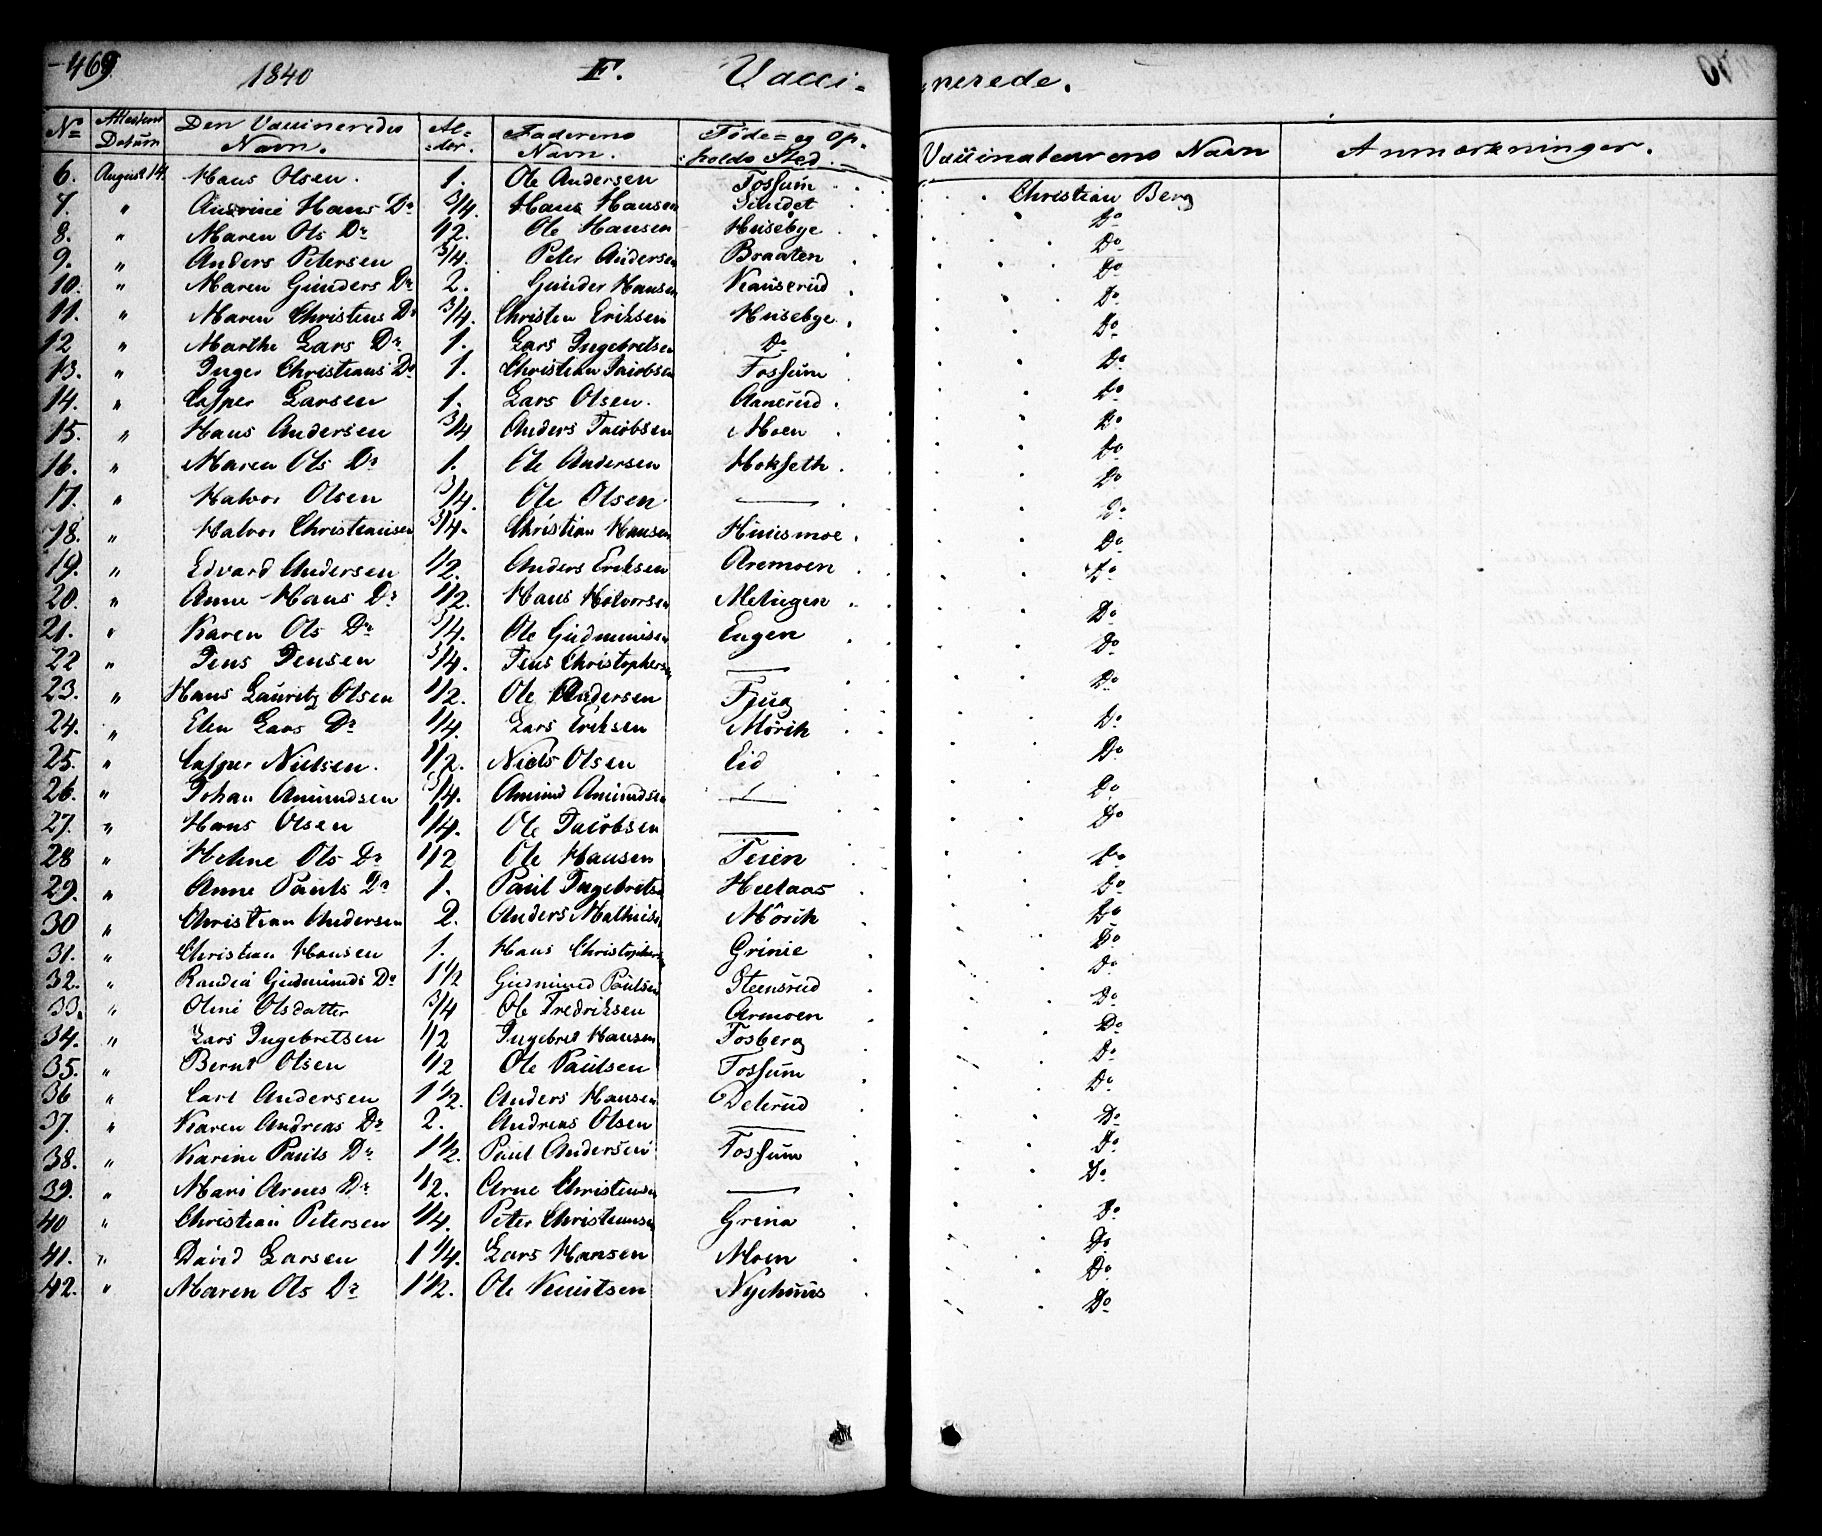 469 1840 F. Vacci- nerede.
No Attestens Datum Den Vaccineredes Navn. Al-der. Faderens Navn. Føde- og Op-holds Sted. Vaccinateurens Navn Anmærkninger.
6. August 14. Hans Olsen. 1. Ole Andersen Fossum Christian Berg
7. " Hans Dr 3/4. Hans Hansen Sundet Do
8. " Maren Ols Dr 1/2. Ole Hansen Huseby Do
9. " Anders Petersen 3/4. Peter Andersen Braaten Do
10. " Maren Gunders Dr 2. Gunder Hansen Do
11. " Maren Christens Dr 3/4. Christen Eriksen Husebye. Do
12 " Marthe Lars Dr 1. Lars Ingebretsen Do Do
13. " Inger Christians Dr 1. Christian Jacobsen Fossum Do
14. " Casper Larsen 1. Lars Olsen. Aanerud. Do
15. " Hans Andersen 3/4 Anders Jacobsen Moen Do
16. " Maren Ols Dr 1. Ole Andersen Hokseth. Do
17. " Halvor Olsen 3/4. Ole Olsen — Do
18. " Halvor Christiansen 3/4. Christian Hansen Do
19. " Edvard Andersen 1/2. Anders Eriksen Aremoen Do
20. " Anne Hans Dr 1/2. Hans Halvorsen Do
21. " Karen Ols Dr 3/4. Ole Gudmunsen Engen Do
22 " Jens Jensen 3/4. Jens Christophersen — Do
23. " Hans Lauritz Olsen 1/2. Ole Andersen Fjug Do
24. " Elen Lars Dr 1/4. Lars Eriksen Mørik Do
25. " Casper Nielsen. 1/2. Niels Olsen Eid Do
26. " Johan Amundsen 3/4. Amund Amundsen — Do
27. " Hans Olsen 1/4. Ole Jacobsen — Do
28 " Helene Ols Dr 1/2 Ole Hansen Do
29. " Anne Pauls Dr 1. Paul Ingebretsen Do
30 " Christian Andersen 2. Anders Mathisen Mörik Do
31. " Christian Hansen 1. Hans Christophersen Grinie Do
32. " Randia Gudmunds Dr 1 1/2 Gudmund Paulsen Steensrud Do
33. " Oline Olsdatter 3/4 Ole Fredriksen Armoen Do
34. " Lars Ingebretsen 1/2 Ingebret Hansen Fosberg Do
35. " Bernt Olsen 1/2 Ole Paulsen Fossum Do
36 " Carl Andersen 1 1/2. Anders Hansen Delerud Do
37. " Karen Andreas Dr 2. Andreas Olsen — Do
38. " Karine Pauls Dr 1 1/2. Paul Andersen Fossum Do
39. " Mari Arnes Dr 1/2. Arne Christensen — Do
40 " Christian Petersen 1/4. Peter Christiansen Grina Do
41. " David Larsen 1 1/4. Lars Hansen Moen Do
42. " Maren Ols Dr 1 1/2. Ole Knutsen Nyehuus Do